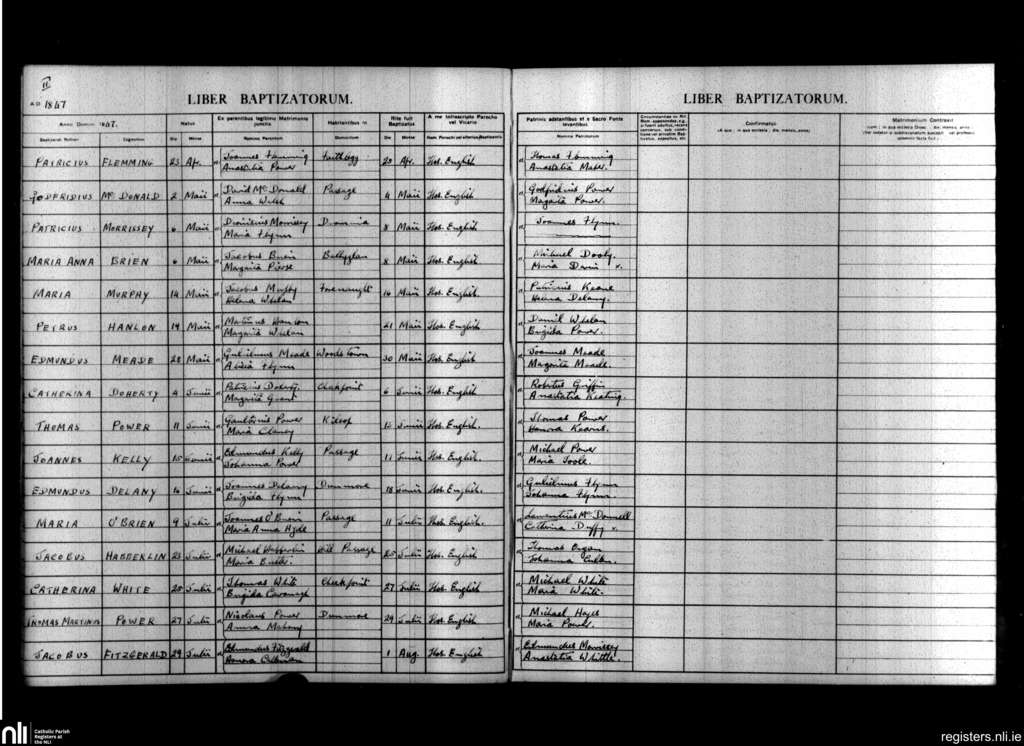 II
A.D. 1847
LIBER BAPTIZATORUM.
LIBER BAPTIZATORUM.
Anno Domini 1847.
Natus
Ex parentibus legitimo Matrimonio junctis
Habitantibus in
Rite fuit Baptizatus
A me infrascripto Parocho vel Vicario
Patrinis adstantibus et e Sacro Fonte levantibus
Confirmatus
Matrimonium Contraxit
Cognomen Die Mense Nomina Parentum Domicilium Die Mense Nomina Patrinorum
PATRICIUS FLEMMING 23 Apr. Joannes Flemming Faithlegg 20 Apr. Hob. English Thomas Flemming
Anastatia Power Anastatia Maher.
GODFRIDIUS McDONALD 2 Maii David McDonald Passage 4 Maii Hob. English Godfridius Power
Anna Welsh Margarita Power.
PATRICIUS MORRISSEY 6 Maii Dionisius Morrissey 8 Maii Hob. English Joannes Flynn.
Maria Flynn
MARIA ANNA BRIEN 6 Maii Jacobus Brien Ballyglan 8 Maii Hob. English Michael Dooly.
Margarita Pierse Maria Davis x.
MARIA MURPHY 14 Maii Jacobus Murphy 16 Maii Hob. English. Patricius Keane
Helena Whelan Delany.
PETRUS HANLON 19 Maii Martinus Hanlon 21 Maii Hob. English Daniel Whelan
Margarita Whelan Brigida Power.
EDMUNDUS MEADE 28 Maii Gulielmus Meade Woodstown 30 Maii Hob. English Joannes Meade
Alicia Flynn Margarita Meade.
CATHERINA DOHERTY 4 Junii Patricius Doherty. Cheekpoint 6 Junii Hob. English Robertus Griffin
Margarita Grant Anastatia Keating.
THOMAS POWER 11 Junii Gualterius Power Kilcop Junii Hob. English. Thomas Power
Maria Clancy Honora
JOANNES KELLY 15 Junii Edmundus Kelly Passage Junii Hob. English. Michael Power
Johanna Power Maria Toole.
EDMUNDUS DELANY 16 Junii Joannes Delany Dunmore 18 Junii Hob. English. Gulielmus Flynn
Brigida Flynn Johanna Flynn.
MARIA O'BRIEN 9 Julii Joannes O'Brien Passage 11 Julii Hob. English. Laurentius McDonnell
Maria Anna Hyde Catherina Duffy x.
JACOBUS HABBERLIN 23 Julii Michael Habberlin Hill Passage 25 Julii Hob. English Thomas
Maria Butler. Johanna
CATHERINA WHITE 25 Julii Thomas White Cheekpoint 27 Julii Hob. English Michael White
Brigida Cavanagh Maria White.
THOMAS MARTINUS POWER 27 Julii Nicolaus Power Dunmore 29 Julii Hob. English Michael Hayes
Anna Mahony Maria Power.
JACOBUS FITZGERALD 29 Julii Edmundus Fitzgerald 1 Aug. Hob. English Edmundus Morrissey
Honora Anastatia Whittle.
nli
Catholic Parish
Registers at
the NLI
registers.nli.ie